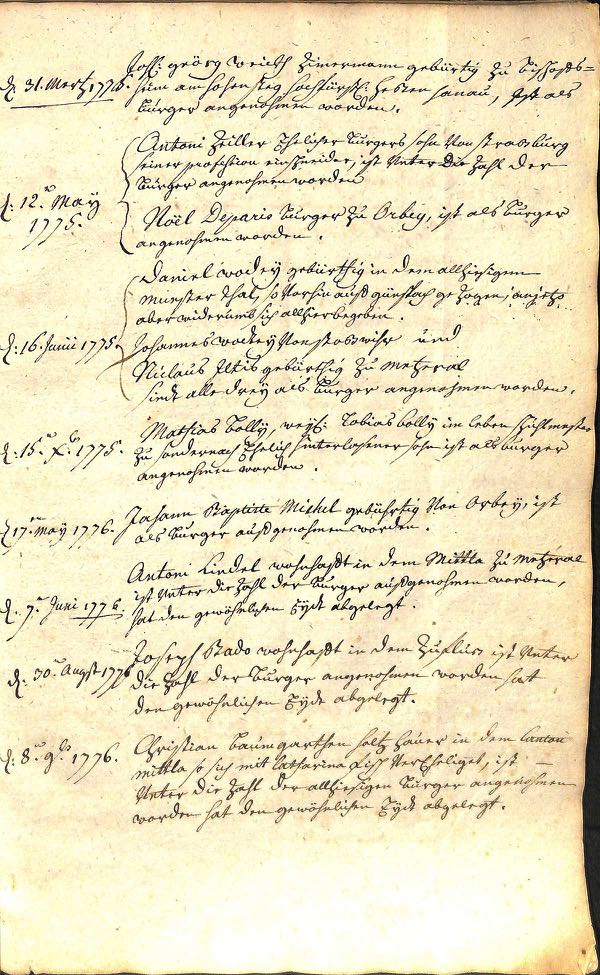 Joh: geörg weich Zimermann gebürtig zu Bischofs=
d. 31. Mertz 1775. heim am hohensteg hochfürstl: Hessen hanau, ist als
burger angenohmen worden.
Antoni Zeiller Ehelicher burgers sohn Von strasburg
seiner profession ein schneider, ist Unter die Zahl der
burger angenohmen worden
d. 12.n May
1775.
Noël Deparis burger zu Orbey, ist als burger
angenohmen worden.
Daniel wodey gebürthig in dem allhiesigen
Munster thal, so Vorhin auß günsbach gezogen, anjetzo
aber widerumb sich allhier begeben.
d. 16. Junii 1775. Johannes wodey Von stosswihr und
Niclaus Iltis gebürthig zu Metzeral
sindt alle drey als burger angenohmen worden.
Mathias bolly, weyl: tobias bolly im leben
d. 15.n Xbr 1775. zu sondernach Ehelich hinterlassener sohn ist als burger
angenohmen worden.
d. 17.n may 1776. Johann Baptiste Michel gebührtig Von Orbey, ist
als burger auffgenohmen worden.
Antoni Lindel wohnhafft in dem Mittla zu Metzeral
ist Unter die Zahl der burger auffgenohmen worden,
d. 7.n Juni 1776. hat den gewöhnlichen Eydt abgelegt.
Joseph Rado wohnhafft in dem ist Unter
d. 30.n Augst 1776 die Zahl der burger angenohmen worden hat
den gewöhnlichen Eydt abgelegt.
d. 8.n 9br 1776. Christian baumgarthen holtz hauer in dem Canton
mittla so sich mit Catharina Verehseliget, ist
Unter die Zahl der allhiesigen burger angenohmen
worden hat den gewöhnlichen Eydt abgelegt.